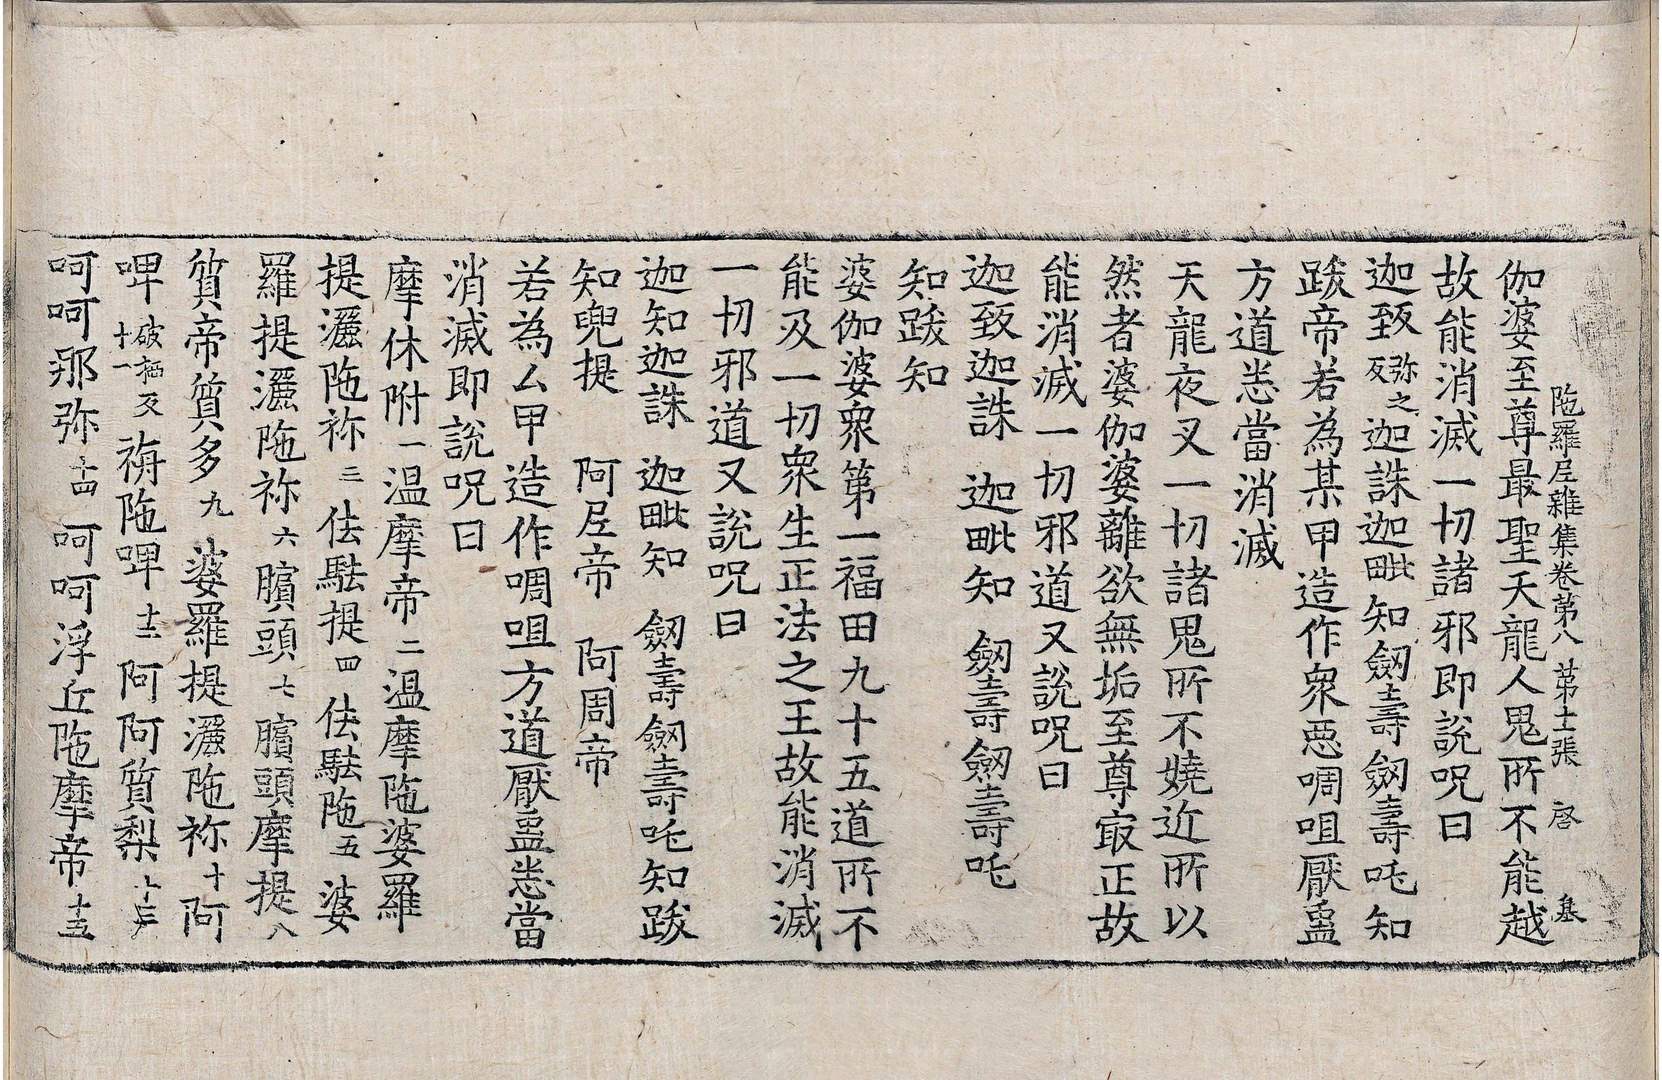 陁羅尼雜集卷第八 第十二張 啓
伽婆至尊最聖天龍人鬼所不能越
故能消滅一切諸邪即說呪曰
迦致弥之反迦誅迦毗知劔壽劔壽吒知
跋帝若為某甲造作衆惡啁咀厭蛊
方道恙當消滅
天龍夜叉一切諸鬼所不嬈近所以
然者婆伽婆離欲無垢至尊㝡正故
能消滅一切邪道又說呪曰
迦致迦誅 迦毗知 劔壽劔壽吒
知跋知
婆伽婆衆第一福田九十五道所不
能及一切衆生正法之王故能消滅
一切邪道又說呪曰
迦知迦誅 迦毗知 劔壽劔壽吒知跋
知兜提 阿尼帝 阿周帝
若為厶甲造作啁咀方道厭蛊恙當
消滅即說呪曰
摩休附一温摩帝二温摩陁婆羅
提灑陁祢三佉駄提四佉駄陁五婆
羅提灑陁祢六臏頭七臏頭摩提八
質帝質多九婆羅提灑陁祢十阿
呷破狦反十一䄫陁呷十二阿阿質梨十三
呵呵那弥十四呵呵浮丘陁摩帝十五